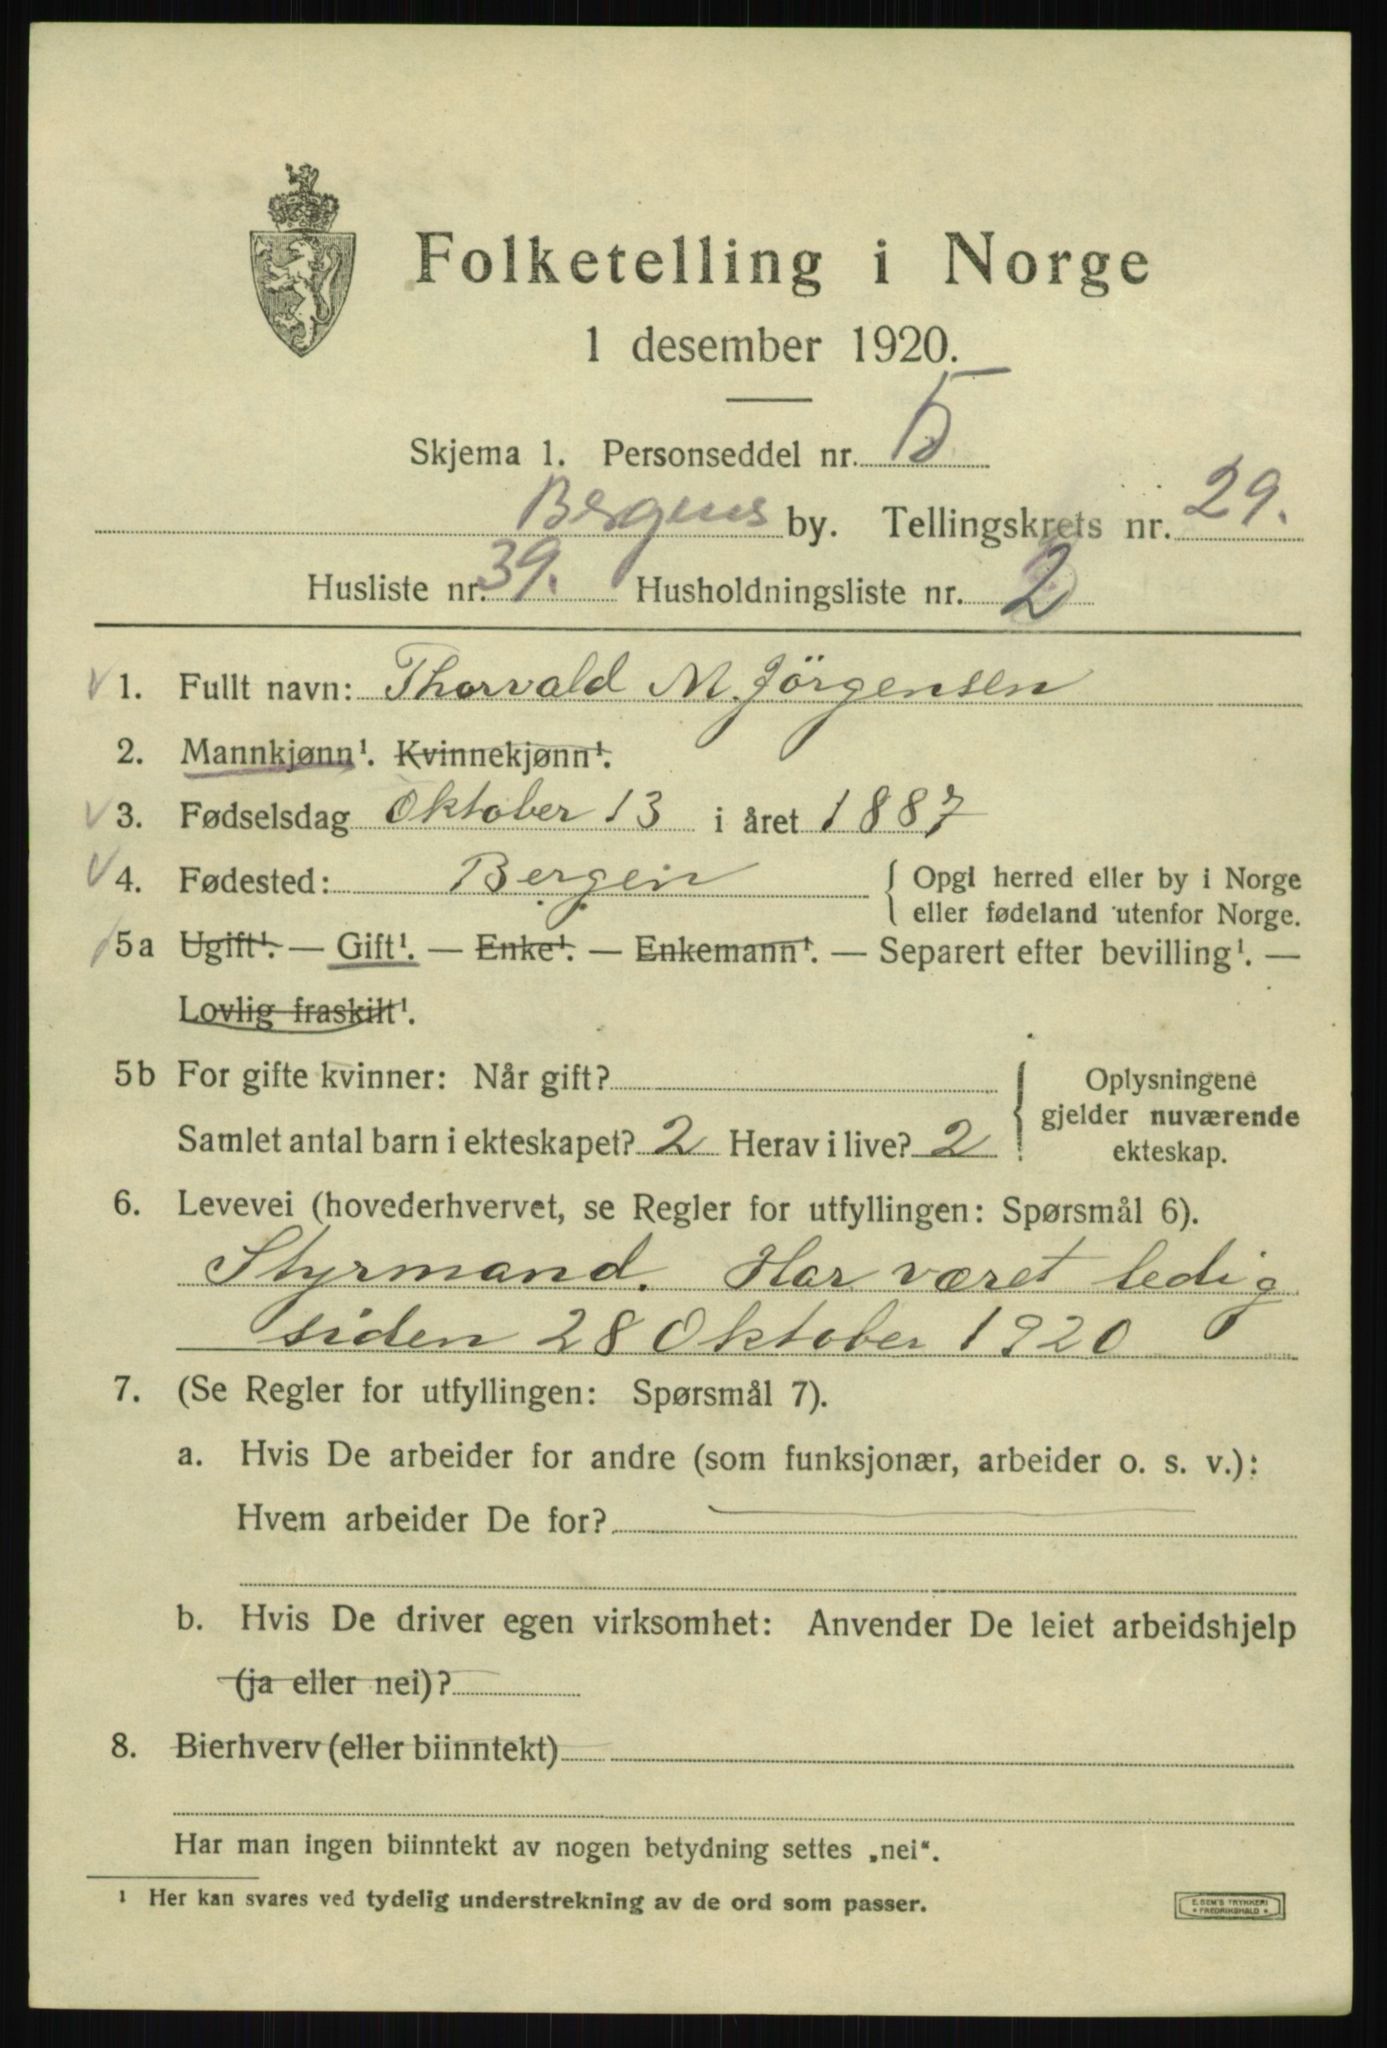 Folketelling i Norge
1 desember 1920.
Skjema 1. Personseddel nr. 5
Bergens by. Tellingskrets nr. 29.
Husliste nr. 39. Husholdningsliste nr. 2
1. Fullt navn: Thorvald M. Jörgensen
2. Mannkjønn¹. Kvinnekjønn¹.
3. Fødselsdag Oktober 13 i året 1887
4. Fødested: Bergen { Opgi herred eller by i Norge
eller fødeland utenfor Norge.
5a Ugift¹. — Gift¹. — Enke¹. — Enkemann¹. — Separert efter bevilling¹. —
Lovlig fraskilt¹.
5b For gifte kvinner: Når gift?
Samlet antal barn i ekteskapet? 2 Herav i live? 2
Oplysningene
gjelder nuværende
ekteskap.
6. Levevei (hovederhvervet, se Regler for utfyllingen: Spørsmål 6).
Styrmand. Har været ledig
siden 28 Oktober 1920
7. (Se Regler for utfyllingen: Spørsmål 7).
a. Hvis De arbeider for andre (som funksjonær, arbeider o. s. v.):
Hvem arbeider De for?
b. Hvis De driver egen virksomhet: Anvender De leiet arbeidshjelp
(ja eller nei)?
8. Bierhverv (eller biinntekt)
Har man ingen biinntekt av nogen betydning settes „nei“.
¹ Her kan svares ved tydelig understrekning av de ord som passer.
E. SEM'S TRYKKERI
* FREDRIKSHALD *